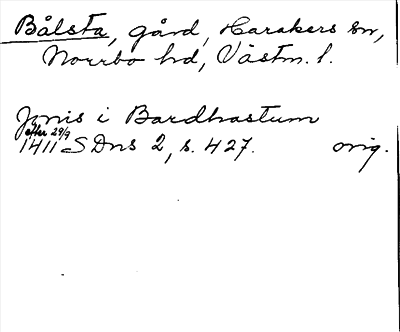 Bålsta, gård, Harakers sn,
Norrbo hd, Västm. l.
Jønis i Bardhastum
efter 29/9
1411 SDns 2, s. 427. orig.